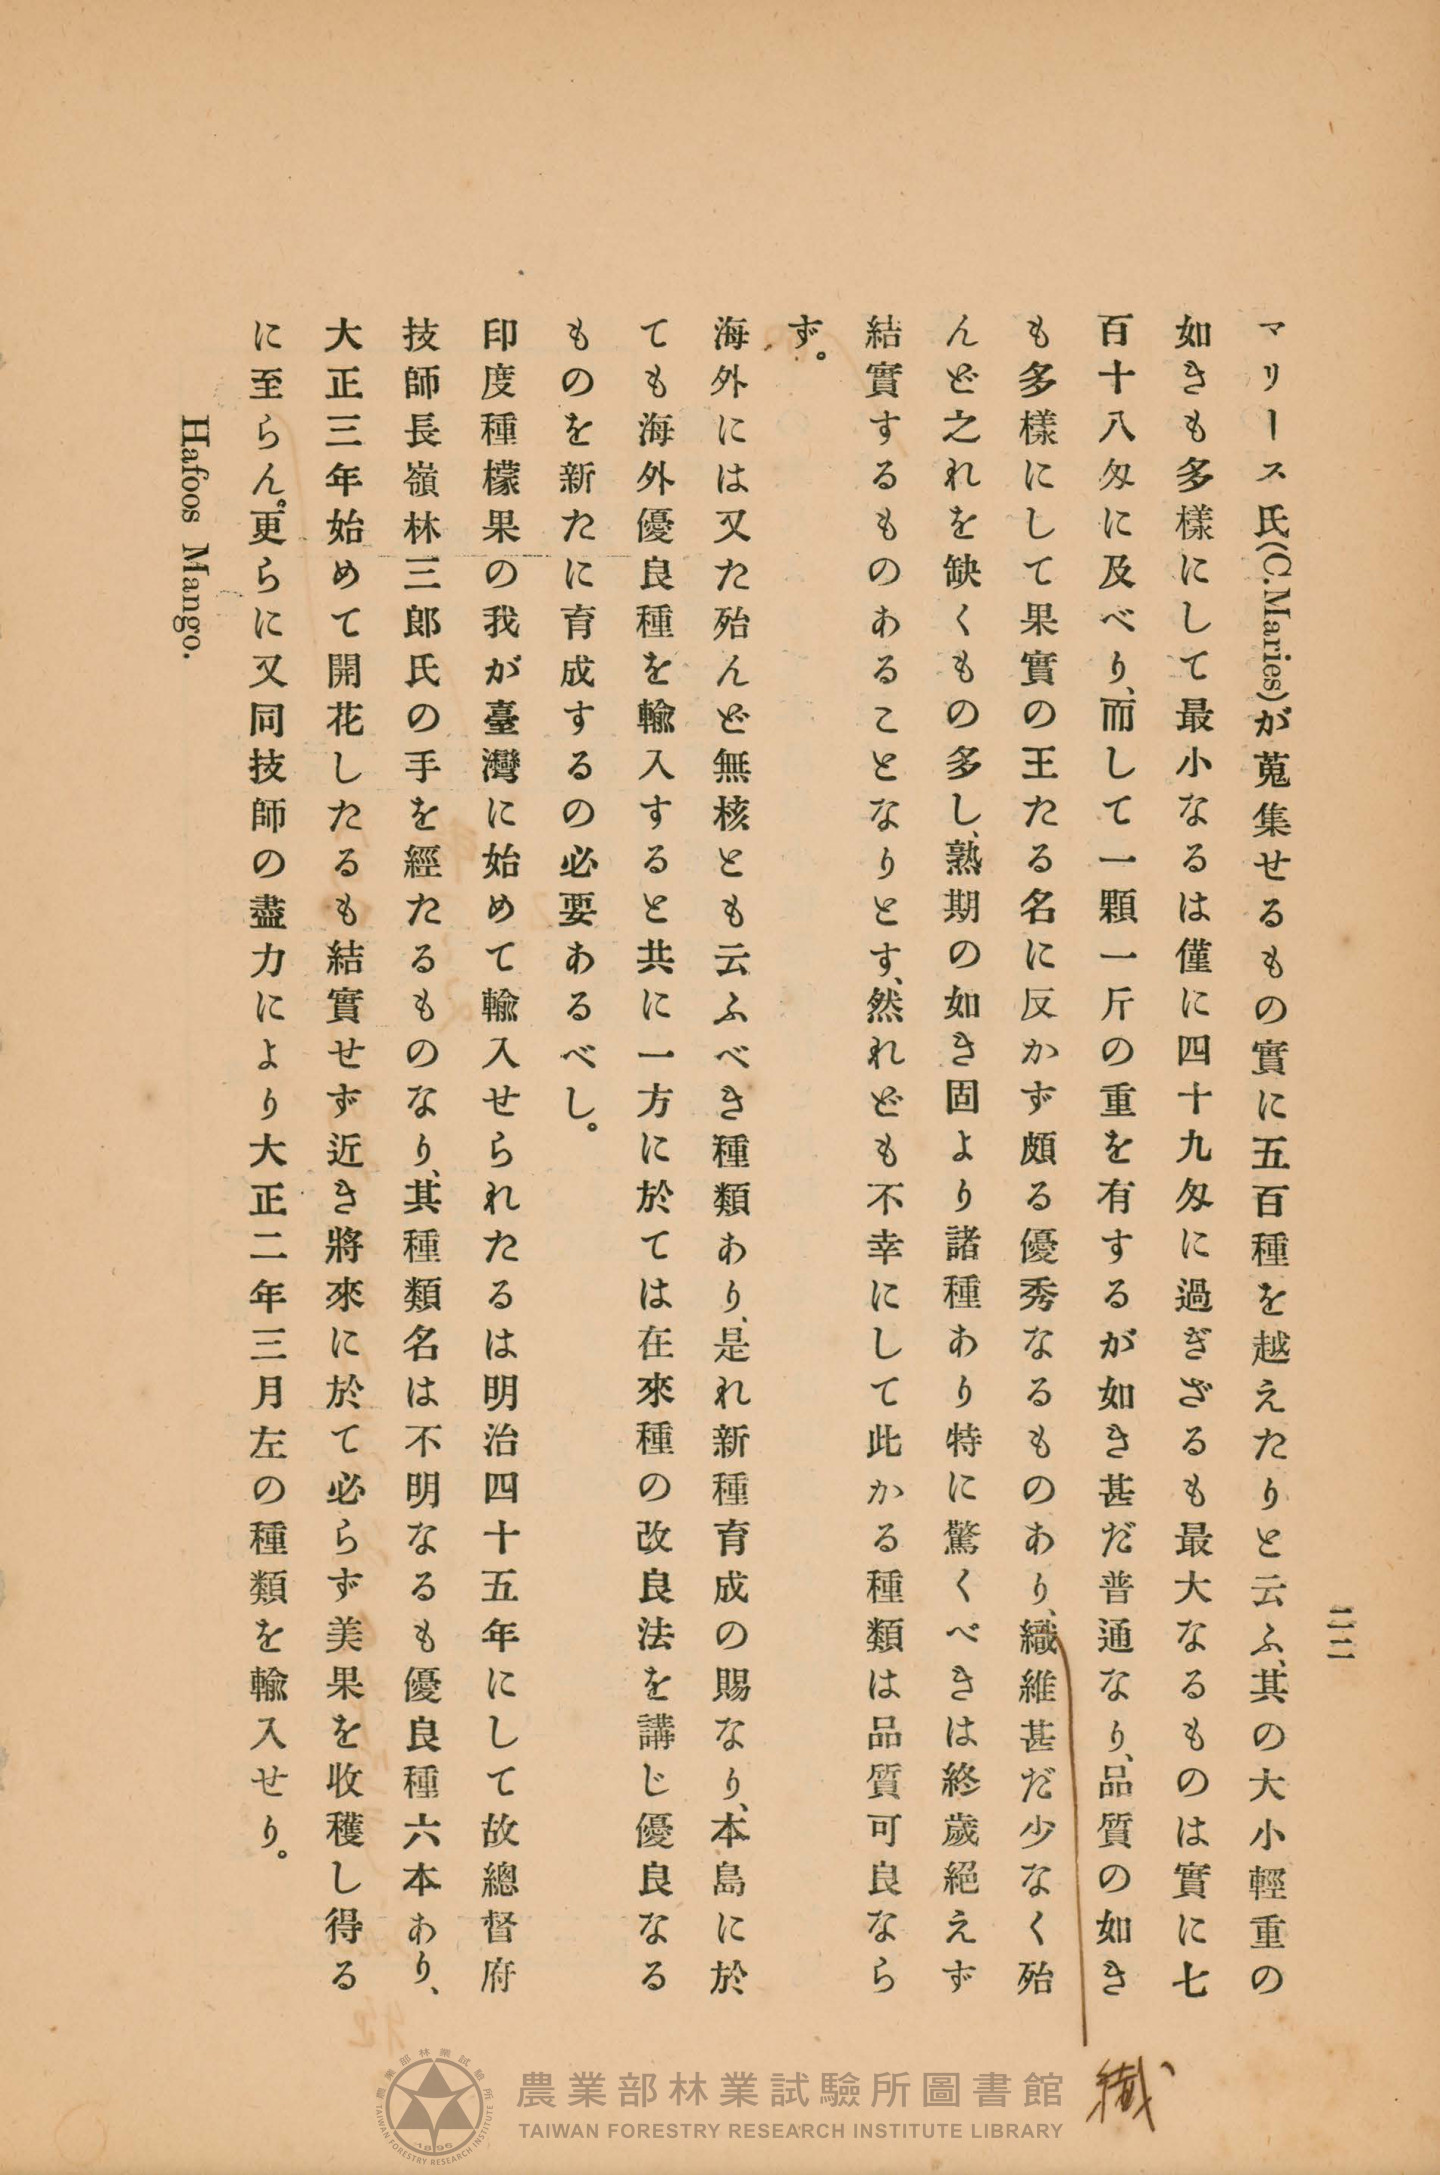 二二
マリース氏(C. Maries)が蒐集せるもの實に五百種を越えたりと云ふ、其の大小輕重の
如きも多樣にして最小なるは僅に四十九匁に過ぎざるも最大なるものは實に七
百十八匁に及べり、而して一顆一斤の重を有するが如き甚だ普通なり、品質の如き
も多樣にして果實の王たる名に反かず頗る優秀なるものあり、織維甚だ少なく殆
んど之れを缺くもの多し、熟期の如き固より諸種あり特に驚くべきは終歲絕えず
結實するものあることなりとす、然れども不幸にして此かる種類は品質可良なら
ず。
海外には又た殆んど無核とも云ふべき種類あり、是れ新種育成の賜なり、本島に於
ても海外優良種を輸入すると共に一方に於ては在來種の改良法を講じ優良なる
ものを新たに育成するの必要あるべし。
印度種檬果の我が臺灣に始めて輸入せられたるは明治四十五年にして故總督府
技師長嶺林三郞氏の手を經たるものなり、其種類名は不明なるも優良種六本あり、
大正三年始めて開花したるも結實せず近き將來に於て必らず美果を收穫し得る
に至らん。更らに又同技師の盡力により大正二年三月左の種類を輸入せり。
Hafoos Mango.
纎
農業部林業試驗所圖書館
TAIWAN FORESTRY RESEARCH INSTITUTE LIBRARY
農業部林業試驗所
TAIWAN FORESTRY RESEARCH INSTITUTE
1896